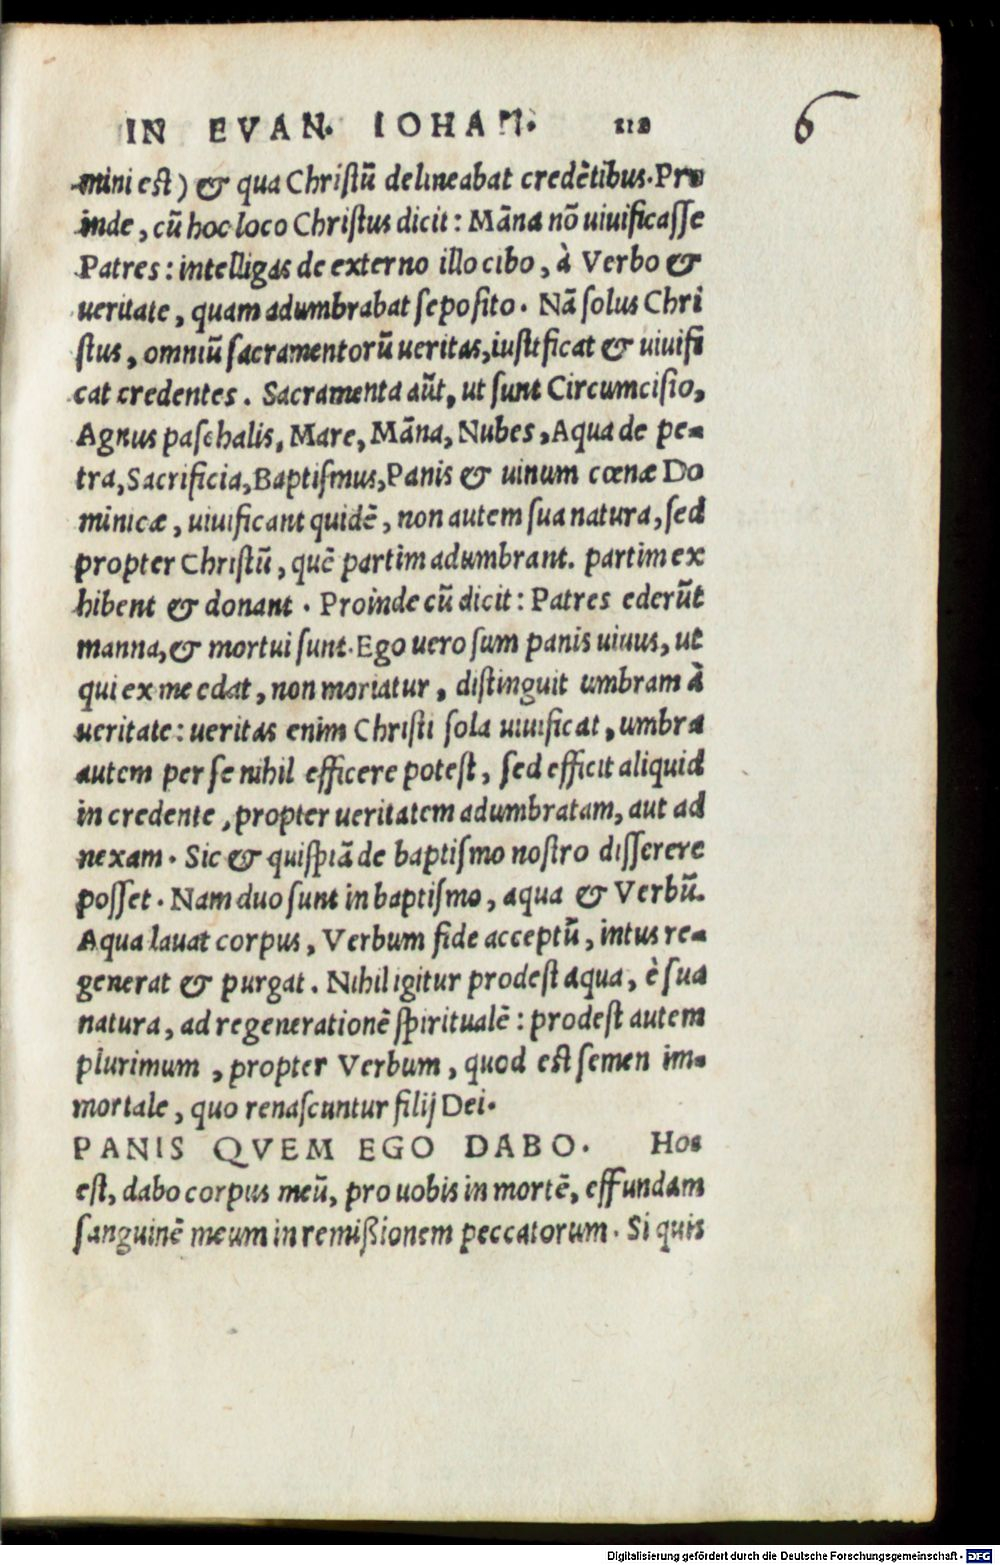 IN EVAN. IOHAN. 112 6
mini est) & qua Christũ delineabat credẽtibus. Pro
inde, cũ hoc loco Christus dicit: Mãna nõ uiuificasse
Patres: intelligas de externo illo cibo, à Verbo &
ueritate, quam adumbrabat seposito. Nã solus Chri
stus, omniũ sacramentorũ ueritas, iustificat & uiuifi
cat credentes. Sacramenta aũt, ut sunt Circumcisio,
Agnus paschalis, Mare, Mãna, Nubes, Aqua de pe-
tra, Sacrificia, Baptismus, Panis & uinum cœnæ Do
minicæ, uiuificant quidẽ, non autem sua natura, sed
propter Christũ, quẽ partim adumbrant. partim ex
hibent & donant. Proinde cũ dicit: Patres ederũt
manna, & mortui sunt. Ego uero sum panis uiuus, ut
qui ex me edat, non moriatur, distinguit umbram à
ueritate: ueritas enim Christi sola uiuificat, umbra
autem per se nihil efficere potest, sed efficit aliquid
in credente, propter ueritatem adumbratam, aut ad
nexam. Sic & quispiã de baptismo nostro disserere
posset. Nam duo sunt in baptismo, aqua & Verbũ.
Aqua lauat corpus, Verbum fide acceptũ, intus re-
generat & purgat. Nihil igitur prodest aqua, è sua
natura, ad regenerationẽ spiritualẽ: prodest autem
plurimum, propter Verbum, quod est semen im-
mortale, quo renascuntur filij Dei.
PANIS QVEM EGO DABO. Hoc
est, dabo corpus meũ, pro uobis in mortẽ, effundam
sanguinẽ meum in remißionem peccatorum. Si quis
Digitalisierung gefördert durch die Deutsche Forschungsgemeinschaft - DFG